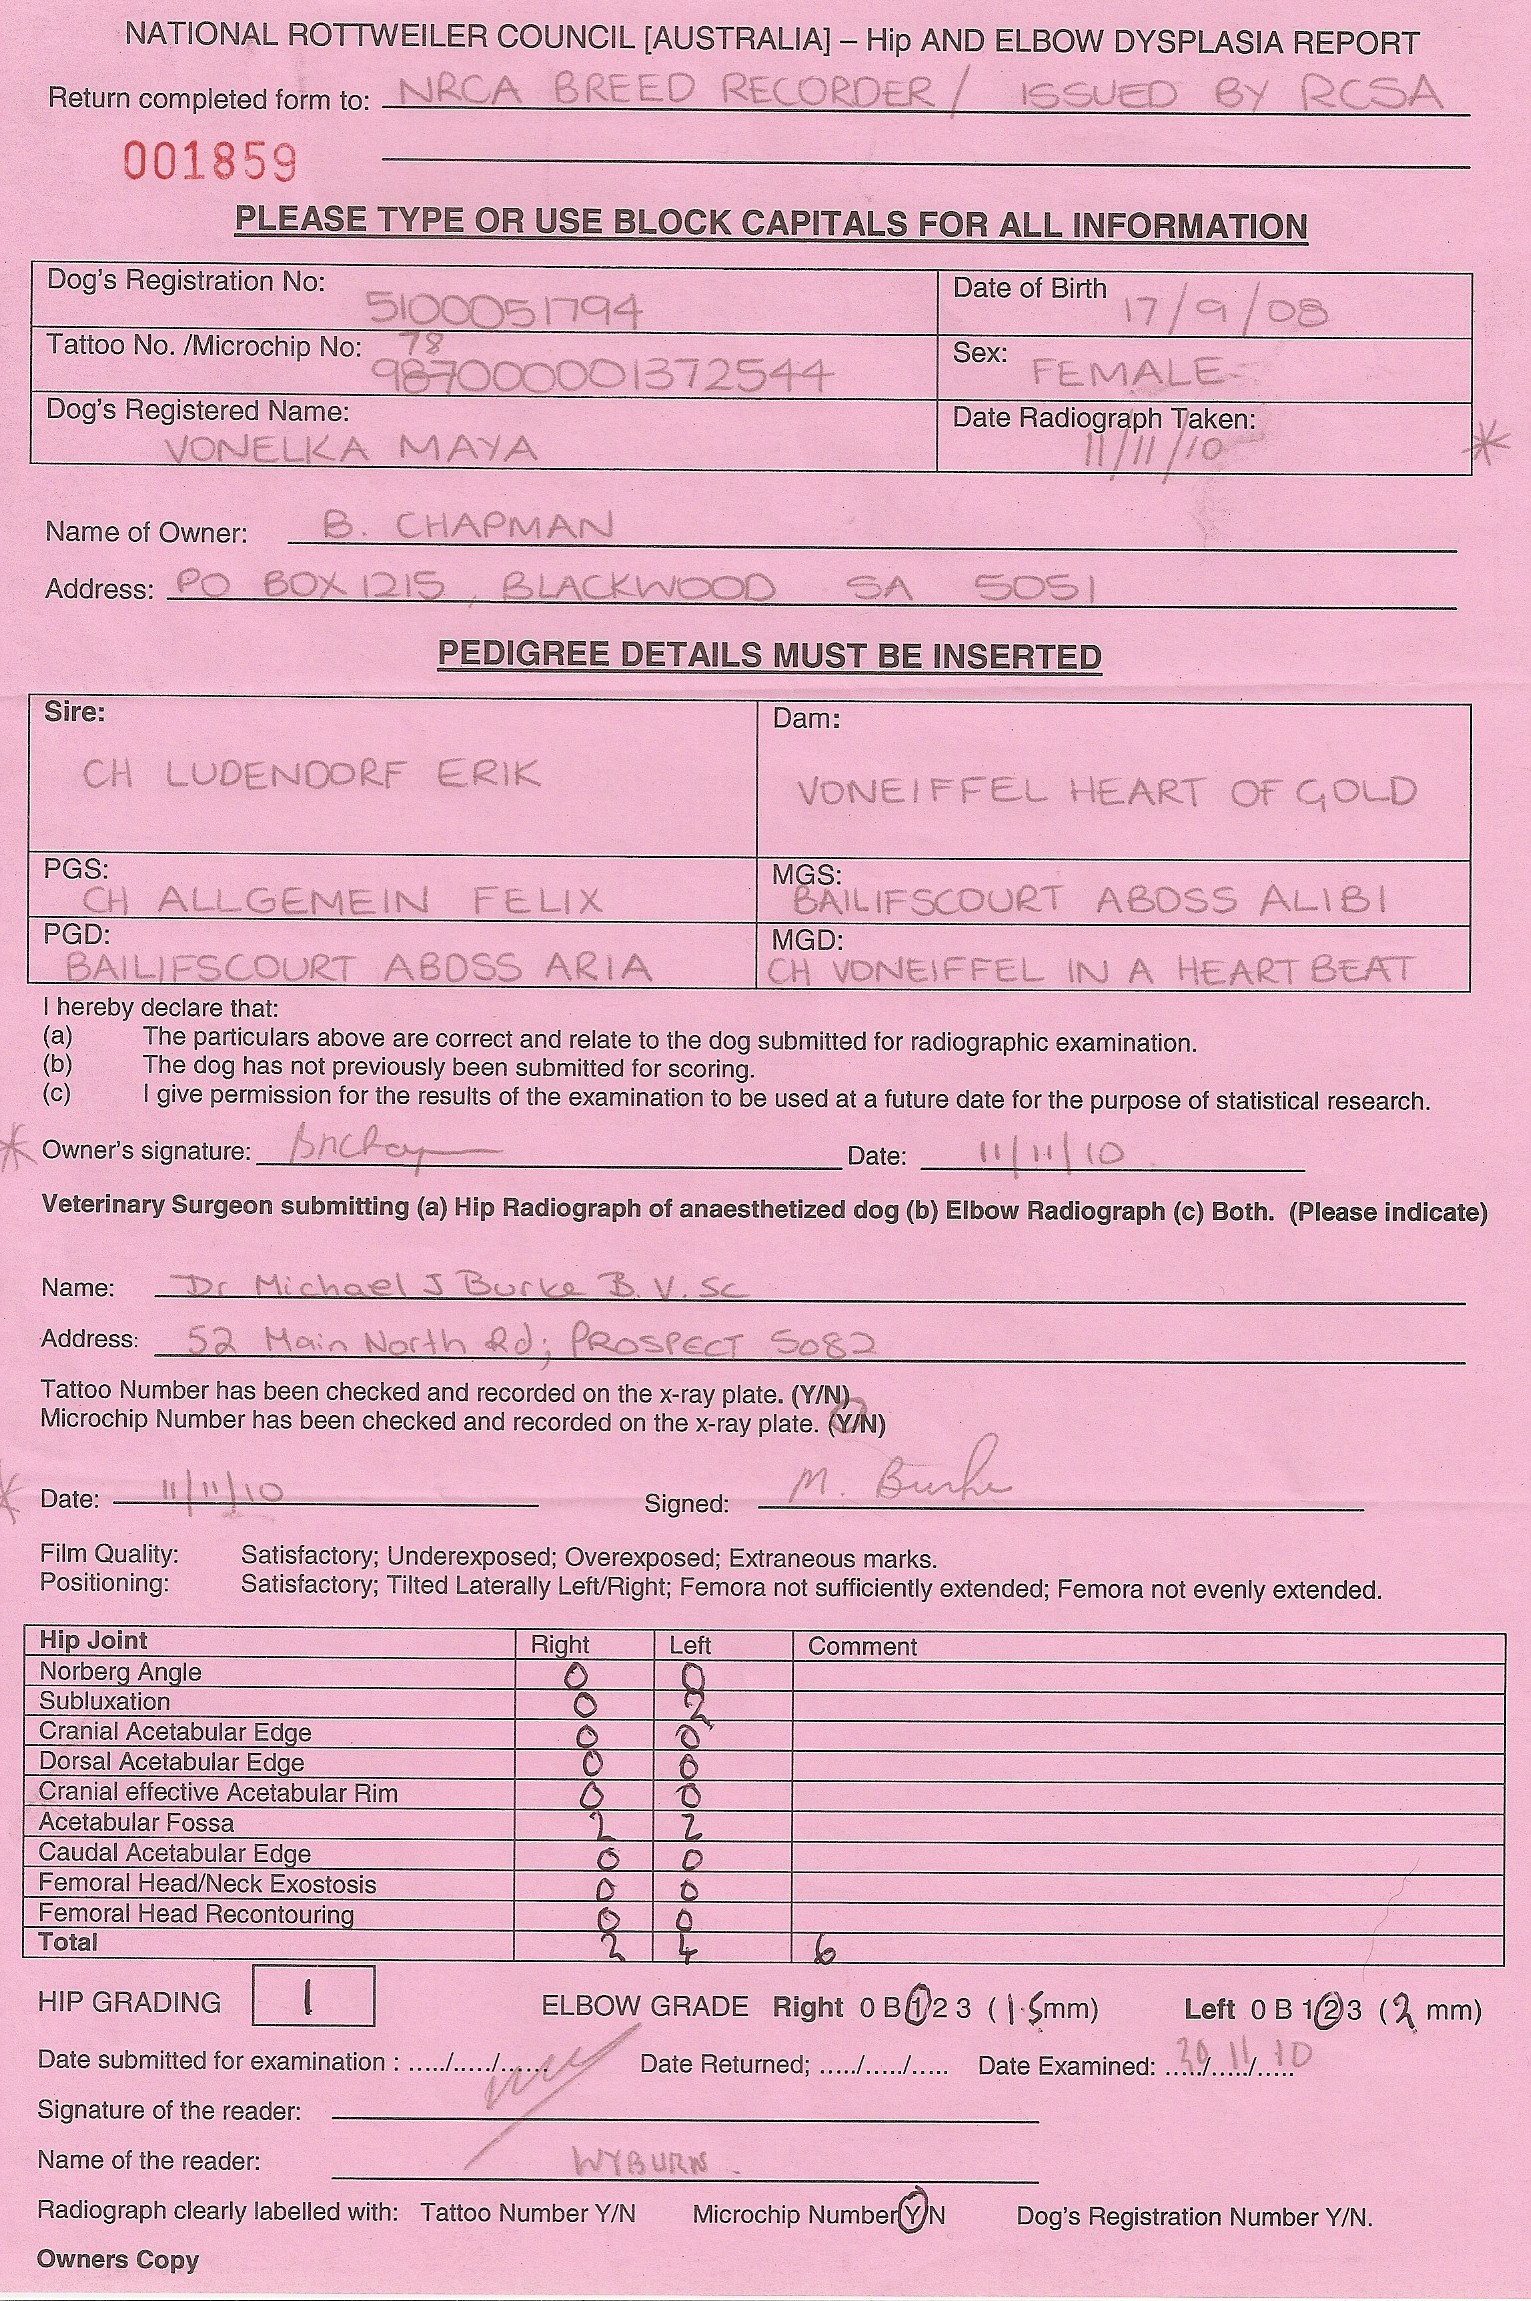 NATIONAL ROTTWEILER COUNCIL [AUSTRALIA] – Hip AND ELBOW DYSPLASIA REPORT
Return completed form to: NRCA BREED RECORDER / ISSUED BY RCSA
001859
PLEASE TYPE OR USE BLOCK CAPITALS FOR ALL INFORMATION
Dog's Registration No: 5100051794 Date of Birth 17/9/08
Tattoo No. /Microchip No: 78 9870000001372544 Sex: FEMALE
Dog's Registered Name: VONELKA MAYA Date Radiograph Taken: 11/11/10 *
Name of Owner: B. CHAPMAN
Address: PO BOX 1215, BLACKWOOD SA 5051
PEDIGREE DETAILS MUST BE INSERTED
Sire: Dam:
CH LUDENDORF ERIK VONEIFFEL HEART OF GOLD
PGS: CH ALLGEMEIN FELIX MGS: BAILIFSCOURT ABOSS ALIBI
PGD: BAILIFSCOURT ABOSS ARIA MGD: CH VONEIFFEL IN A HEART BEAT
I hereby declare that:
(a) The particulars above are correct and relate to the dog submitted for radiographic examination.
(b) The dog has not previously been submitted for scoring.
(c) I give permission for the results of the examination to be used at a future date for the purpose of statistical research.
* Owner's signature: Date: 11/11/10
Veterinary Surgeon submitting (a) Hip Radiograph of anaesthetized dog (b) Elbow Radiograph (c) Both. (Please indicate)
Name: Dr Michael J Burke B.V.Sc
Address: 52 Main North Rd; PROSPECT 5082
Tattoo Number has been checked and recorded on the x-ray plate. (Y/N)
Microchip Number has been checked and recorded on the x-ray plate. (Y/N)
* Date: 11/11/10 Signed: M. Burke
Film Quality: Satisfactory; Underexposed; Overexposed; Extraneous marks.
Positioning: Satisfactory; Tilted Laterally Left/Right; Femora not sufficiently extended; Femora not evenly extended.
Hip Joint Right Left Comment
Norberg Angle 0 0
Subluxation 0 2
Cranial Acetabular Edge 0 0
Dorsal Acetabular Edge 0 0
Cranial effective Acetabular Rim 0 0
Acetabular Fossa 2 2
Caudal Acetabular Edge 0 0
Femoral Head/Neck Exostosis 0 0
Femoral Head Recontouring 0 0
Total 2 4 6
HIP GRADING 1 ELBOW GRADE Right 0 B 1 2 3 (1.5mm) Left 0 B 1 2 3 (2 mm)
Date submitted for examination : ...../...../...... Date Returned; ...../...../..... Date Examined: 30/11/10
Signature of the reader:
Name of the reader: WYBURN.
Radiograph clearly labelled with: Tattoo Number Y/N Microchip Number Y/N Dog's Registration Number Y/N.
Owners Copy